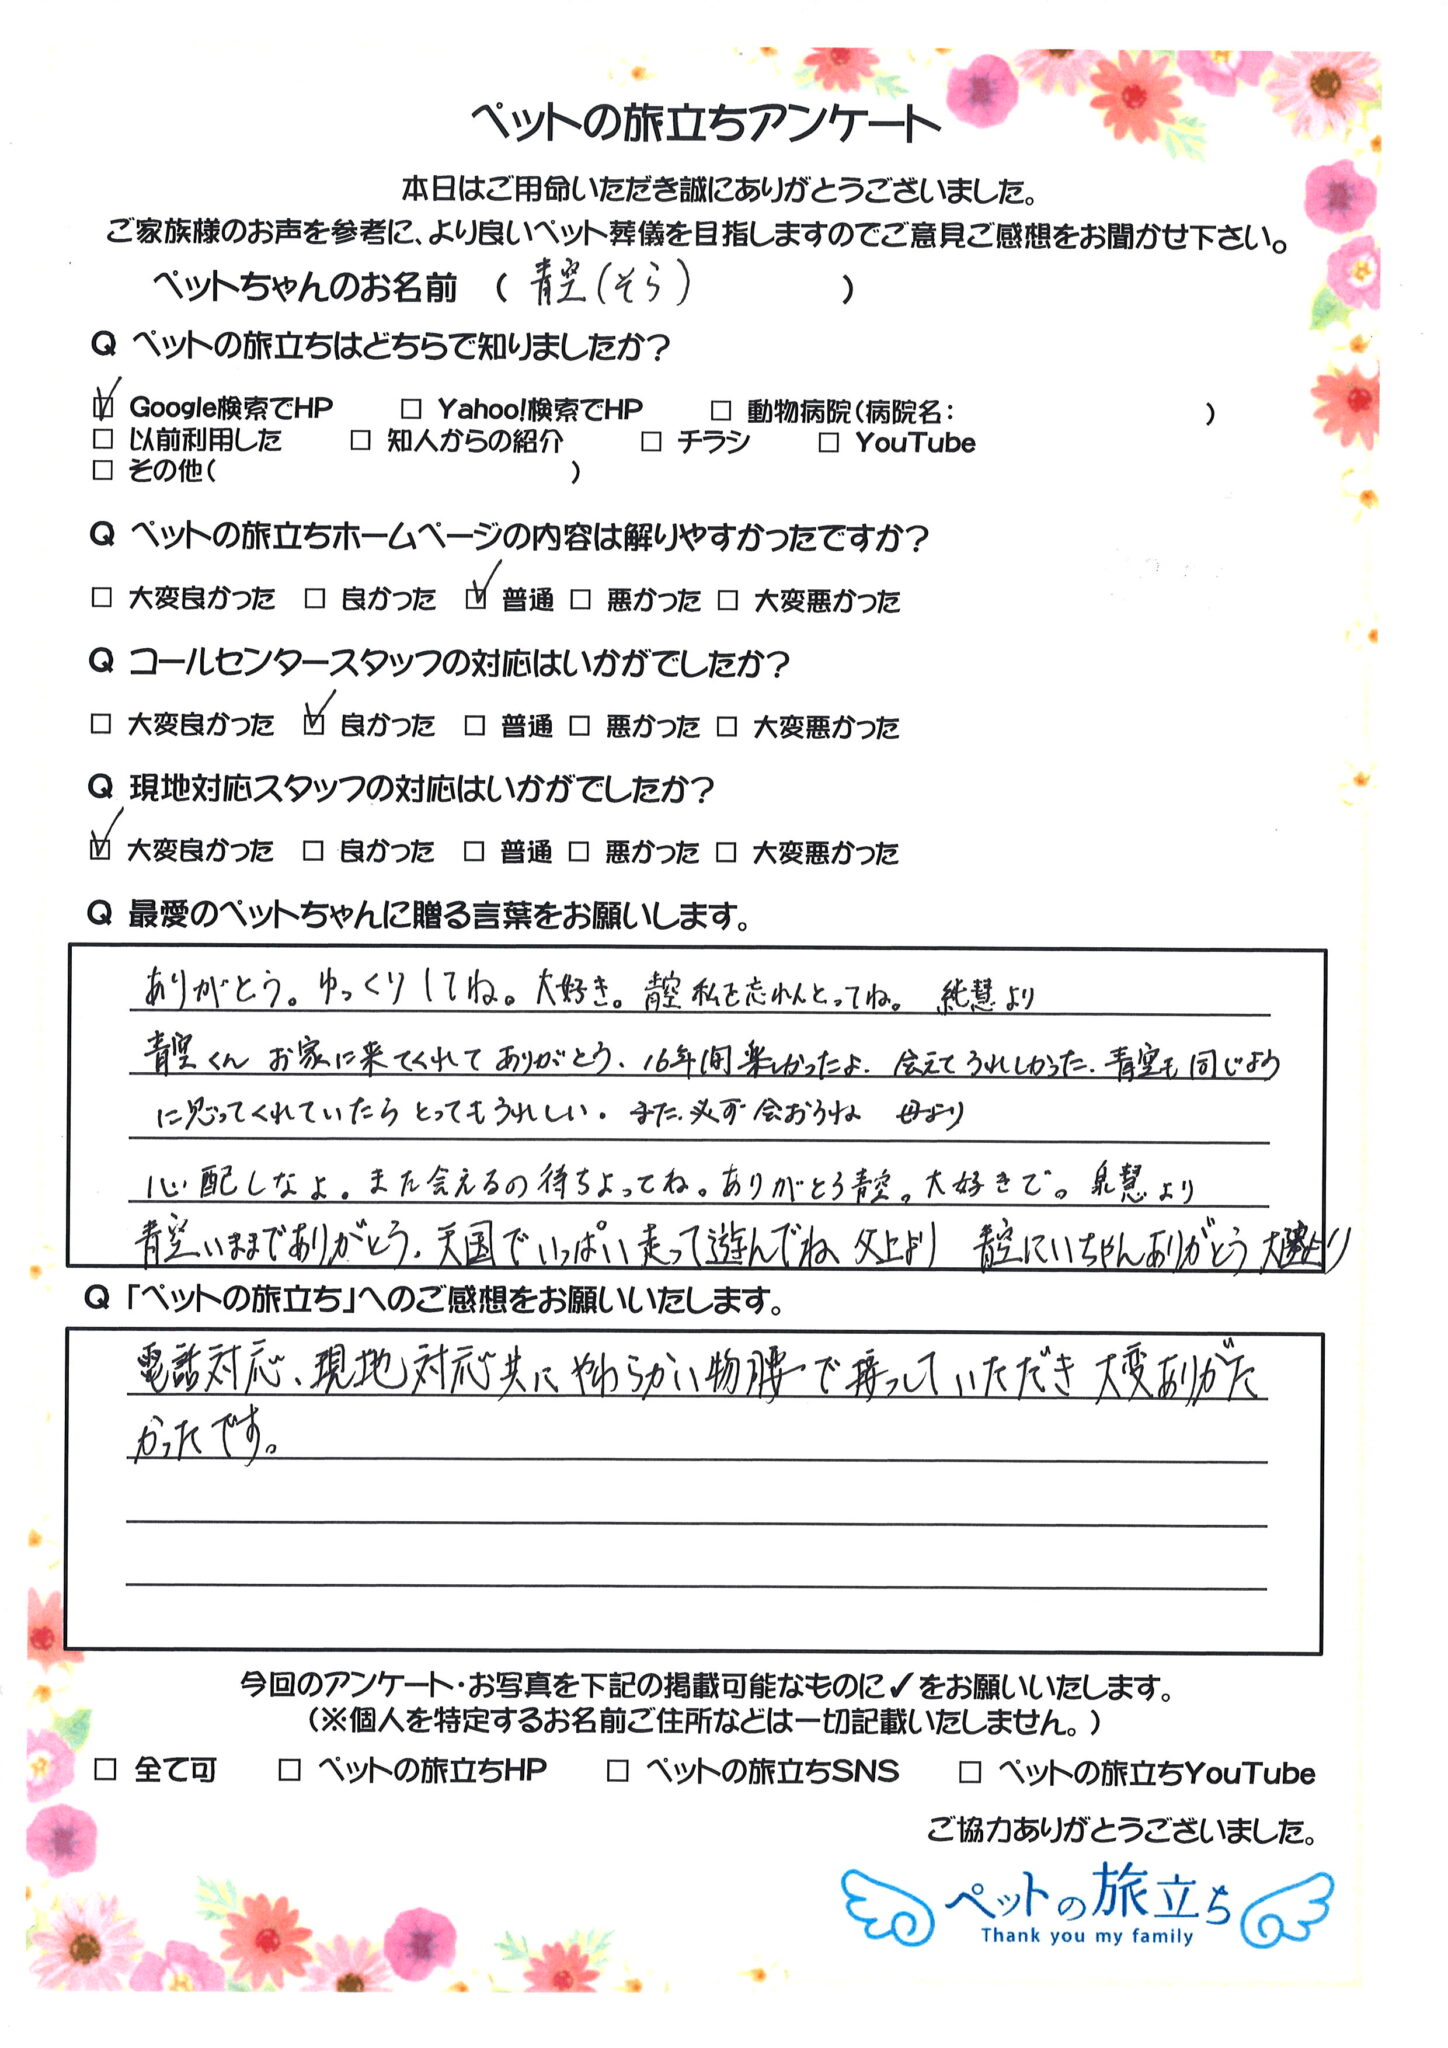 ペットの旅立ちアンケート
本日はご用命いただき誠にありがとうございました。
ご家族様のお声を参考に、より良いペット葬儀を目指しますのでご意見ご感想をお聞かせ下さい。
ペットちゃんのお名前 ( 青空(そら) )
Q ペットの旅立ちはどちらで知りましたか?
☑ Google検索でHP □ Yahoo!検索でHP □ 動物病院(病院名: )
□ 以前利用した □ 知人からの紹介 □ チラシ □ YouTube
□ その他( )
Q ペットの旅立ちホームページの内容は解りやすかったですか?
□ 大変良かった □ 良かった ☑ 普通 □ 悪かった □ 大変悪かった
Q コールセンタースタッフの対応はいかがでしたか?
□ 大変良かった ☑ 良かった □ 普通 □ 悪かった □ 大変悪かった
Q 現地対応スタッフの対応はいかがでしたか?
☑ 大変良かった □ 良かった □ 普通 □ 悪かった □ 大変悪かった
Q 最愛のペットちゃんに贈る言葉をお願いします。
ありがとう。ゆっくりしてね。大好き。青空 私を忘れんとってね。 純慧より
青空くん お家に来てくれてありがとう. 16年間楽しかったよ. 会えてうれしかった. 青空も同じよう
に思ってくれていたら とってもうれしい. また.必ず会おうね 母より
心配しなよ。また会えるの待ちよってね。ありがとう青空。大好きで。 泉慧より
青空いままでありがとう. 天国でいっぱい走って遊んでね 父上より 青空にいちゃんありがとう より
Q 「ペットの旅立ち」へのご感想をお願いいたします。
電話対応、現地対応共にやわらかい物腰で接っしていただき大変ありがた
かったです。
今回のアンケート・お写真を下記の掲載可能なものに✓をお願いいたします。
(※個人を特定するお名前ご住所などは一切記載いたしません。)
□ 全て可 □ ペットの旅立ちHP □ ペットの旅立ちSNS □ ペットの旅立ちYouTube
ご協力ありがとうございました。
ペットの旅立ち
Thank you my family